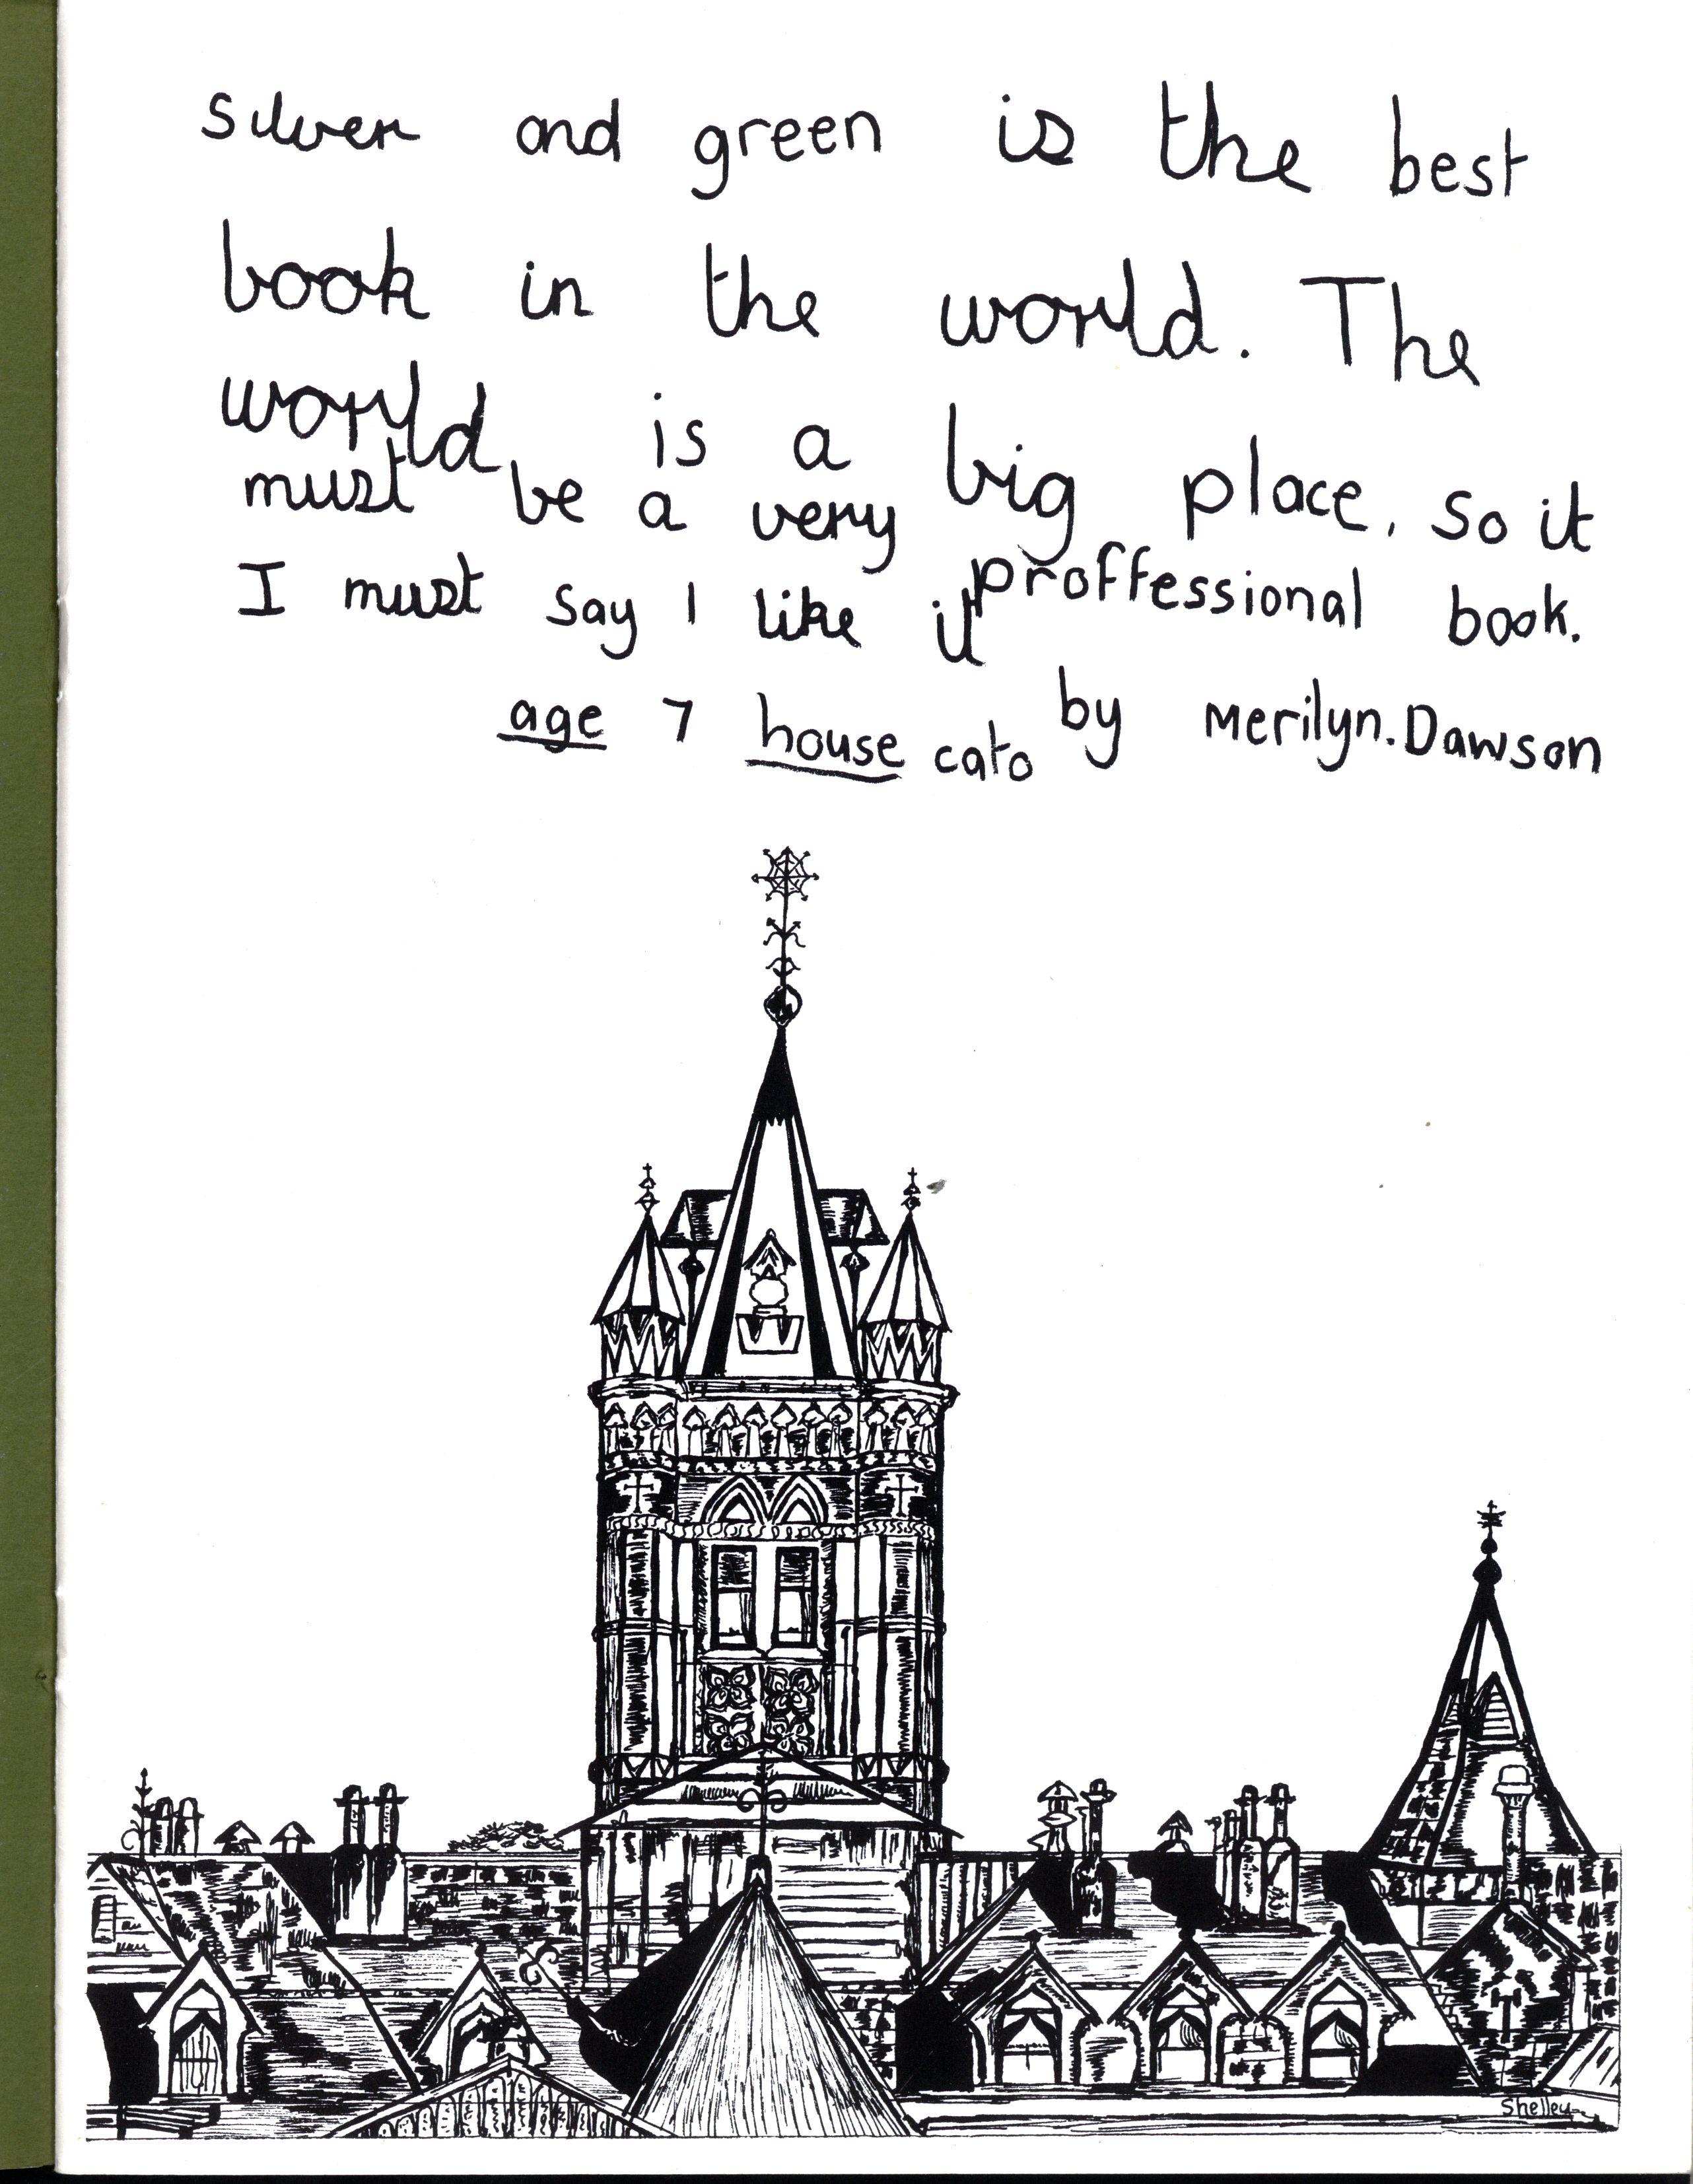 Silver and green is the best
book in the world. The
world is a big place, so it
must be a very proffessional book.
I must say I like it
by Merilyn.Dawson
age 7 house cato
Shelley